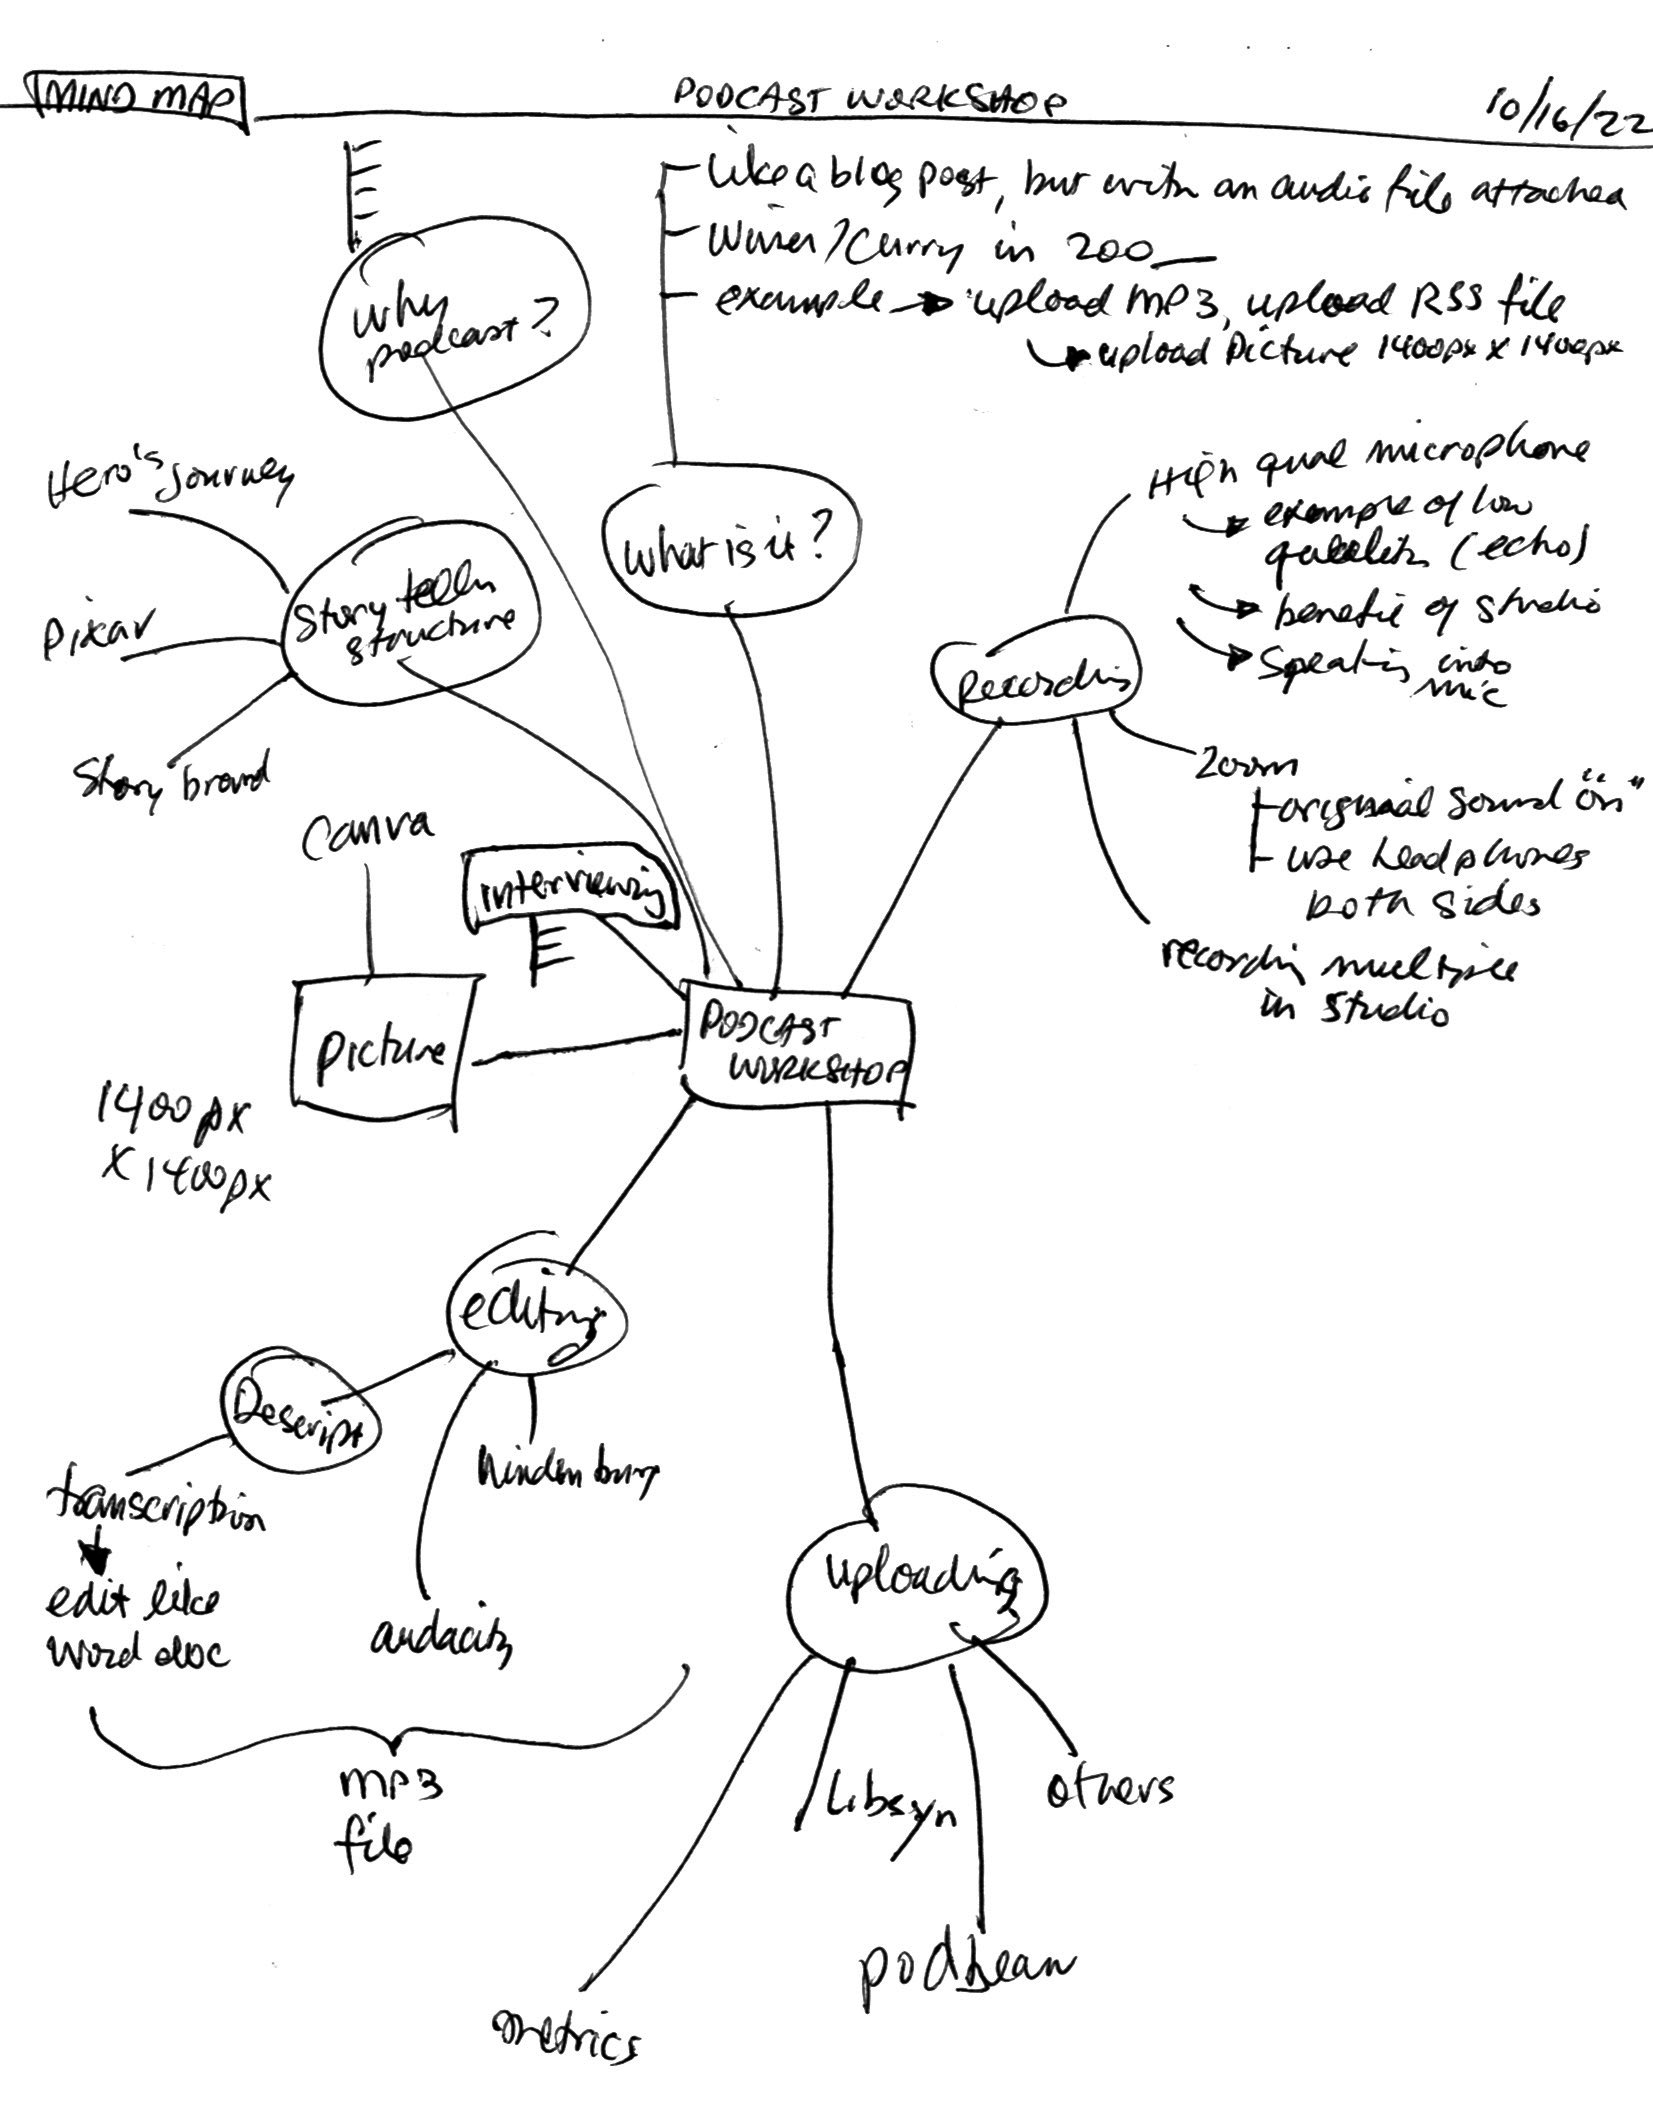 MIND MAP
PODCAST WORKSHOP
10/16/22
Like a blog post, but with an audio file attached
Winer/Curry in 200__
example → upload MP3, upload RSS file
upload Picture 1400px x 1400px
why
podcast?
Hero's Journey
What is it?
High qual microphone
example of low
quality (echo)
benefit of studio
Speaking into
mic
Story telling
structure
Pixar
Story brand
Recording
Zoom
original sound "on"
use headphones
both sides
recording multiple
in studio
Canva
interviewing
Picture
1400px
x 1400px
PODCAST
WORKSHOP
editing
Descript
hindenburg
transcription
edit like
word doc
audacity
mp3
file
uploading
Libsyn
others
podbean
metrics